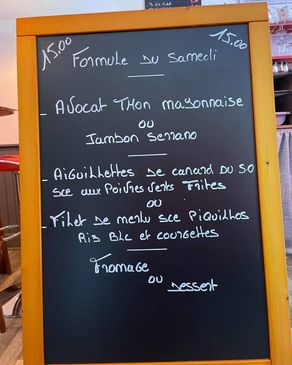 15.00 15.00
Formule Du Samedi
- Avocat Thon mayonnaise
ou
Jambon Serrano
- Aiguillettes De canard Du SO
sce aux Poivres Verts Frites
ou
- Filet De merlu sce Piquillos
Ris Blc et courgettes
Fromage
ou
Dessert